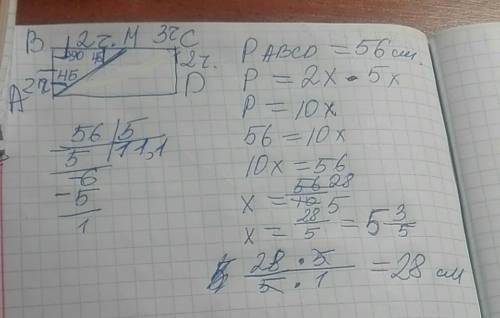 B 2ч. M 3ч C
90 45
2ч 45 2ч.
A D
56 | 5
5 | 11,1
6
- 5
1
P ABCD = 56 см.
P = 2x · 5x
P = 10x
56 = 10x
10x = 56
x = 56 28 / 10 5
x = 28/5 = 5 3/5
28 · 5 / 5 · 1 = 28 см